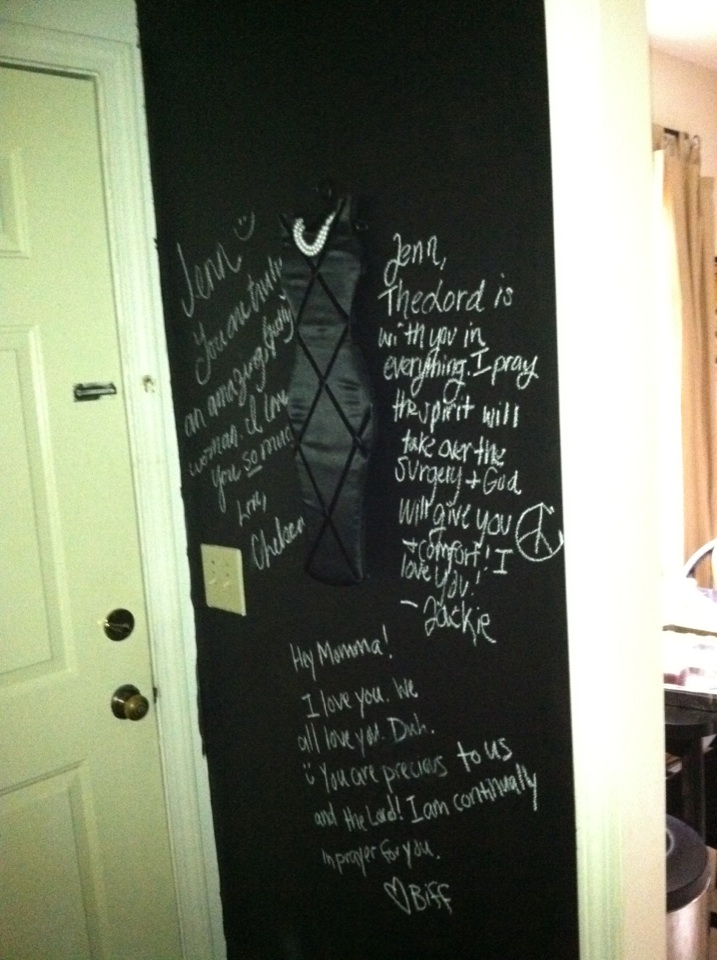 Jenn :)
You are truly
an amazing Godly
woman. I love
you so much
Love,
Chelsea
Jenn,
The Lord is
with you in
everything. I pray
the spirit will
take over the
surgery + God
will give you ☮
+ comfort! I
love you!
- Jackie
Hey Momma!
I love you. We
all love you. Duh.
:) You are precious to us
and the Lord! I am continually
in prayer for you.
♡ Biff